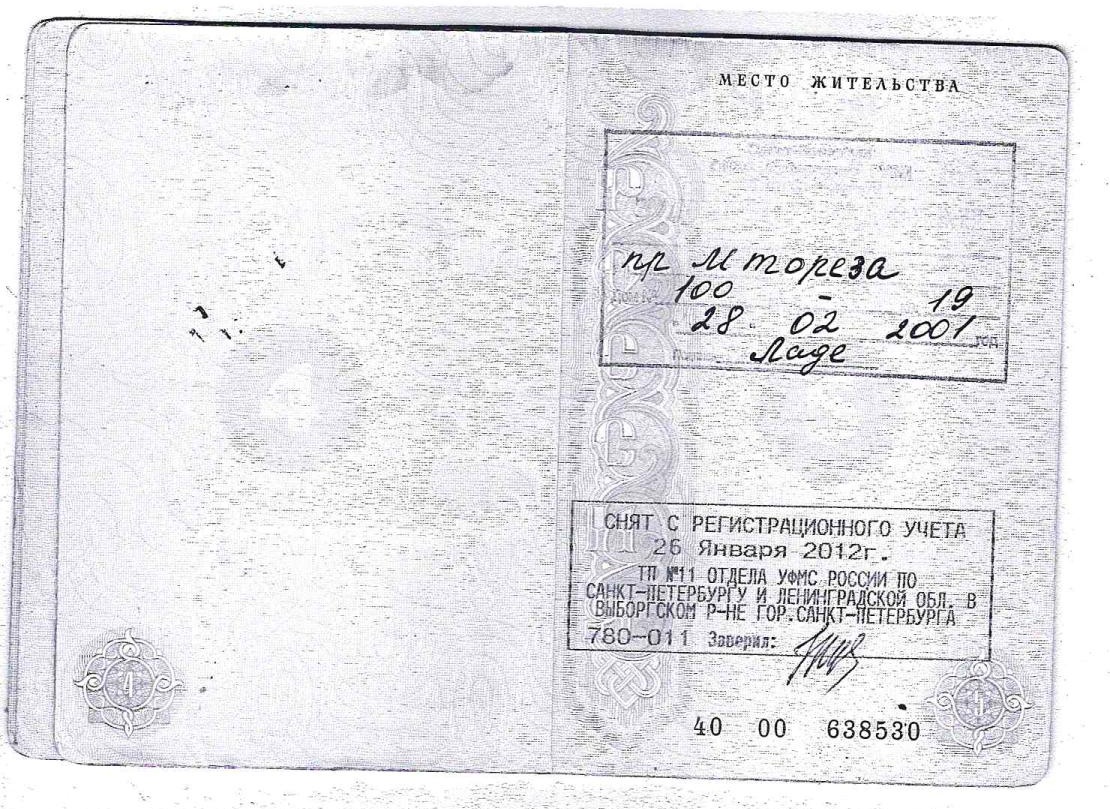 МЕСТО ЖИТЕЛЬСТВА
пр М Тореза
100 - 19
28 02 2001 год
СНЯТ С РЕГИСТРАЦИОННОГО УЧЕТА
26 Января 2012г.
ТП №11 ОТДЕЛА УФМС РОССИИ ПО
САНКТ-ПЕТЕРБУРГУ И ЛЕНИНГРАДСКОЙ ОБЛ. В
ВЫБОРГСКОМ Р-НЕ ГОР.САНКТ-ПЕТЕРБУРГА
780-011 Заверил:
4
5
40 00 638530